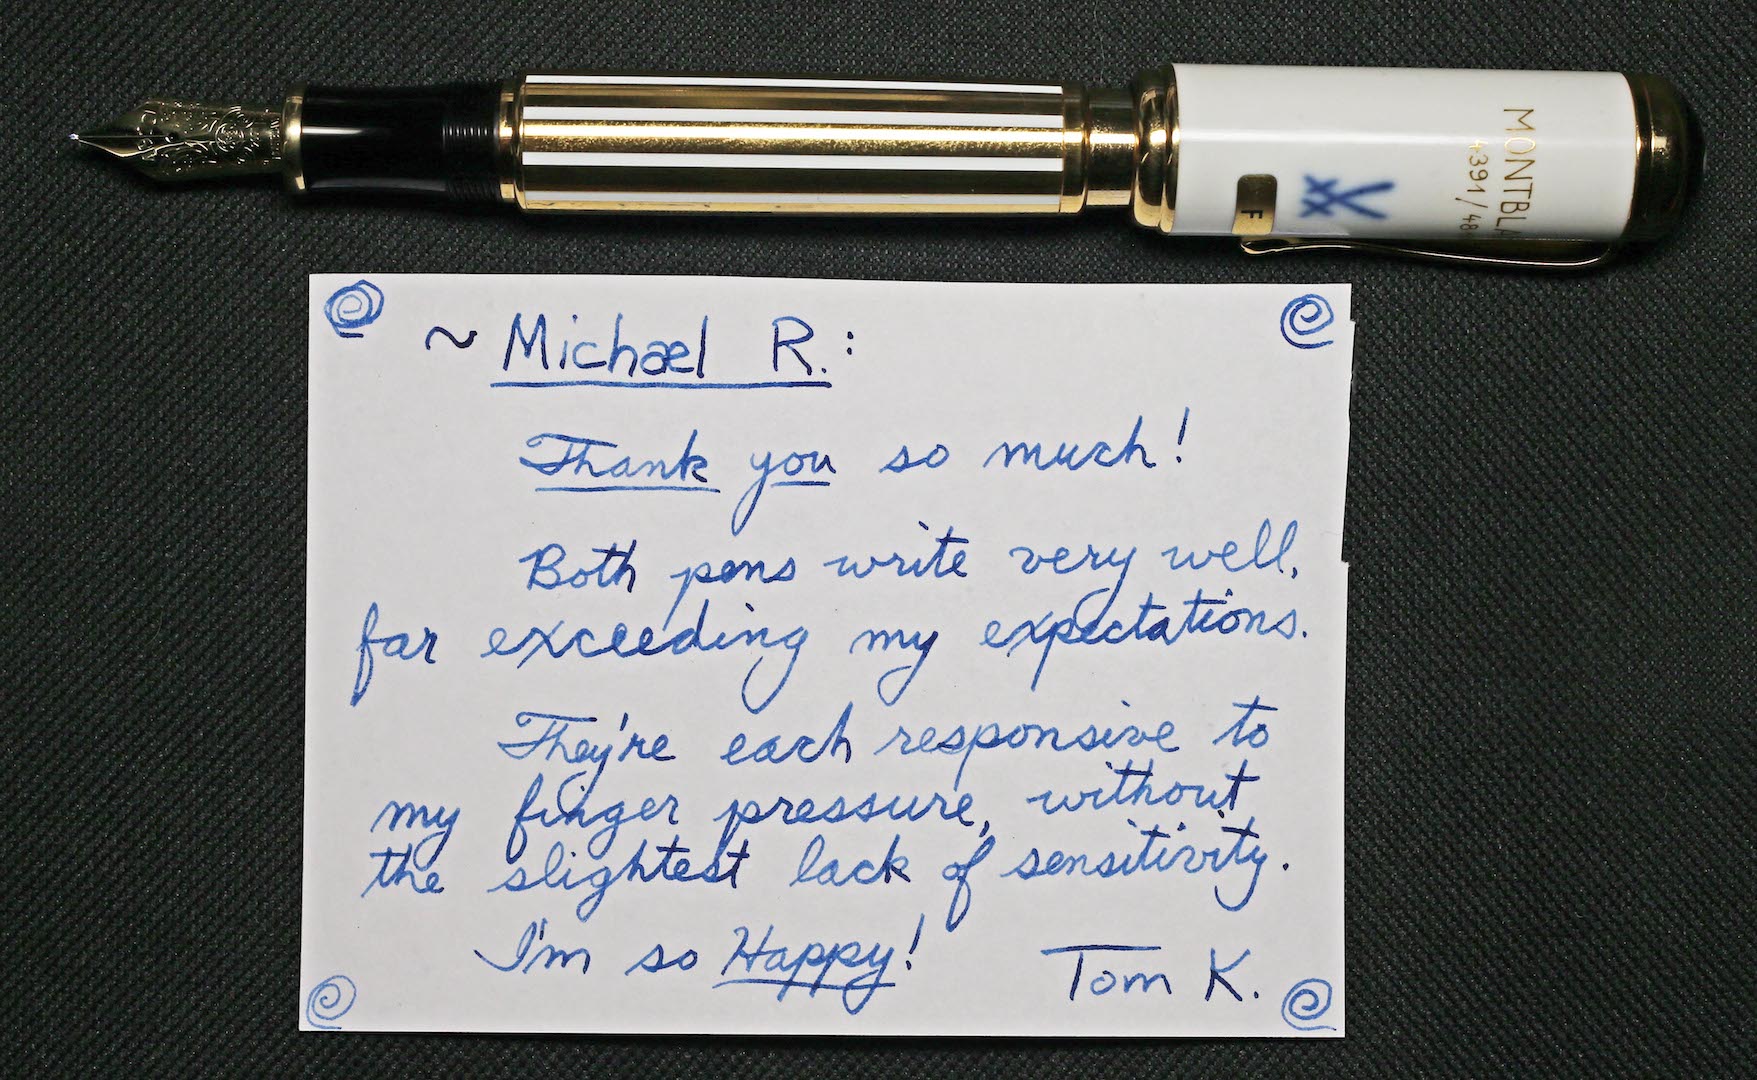 MONTBLA
4391/48
F
~ Michael R.:
Thank you so much!
Both pens write very well,
far exceeding my expectations.
They're each responsive to
my finger pressure, without
the slightest lack of sensitivity.
I'm so Happy! Tom K.